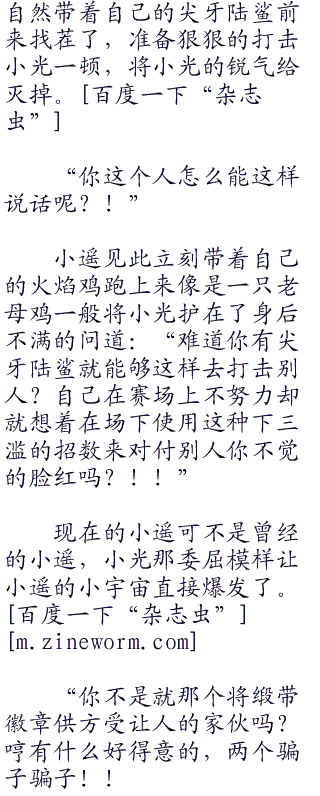 自然带着自己的尖牙陆鲨前
来找茬了，准备狠狠的打击
小光一顿，将小光的锐气给
灭掉。[百度一下“杂志
虫”]
“你这个人怎么能这样
说话呢？！”
小遥见此立刻带着自己
的火焰鸡跑上来像是一只老
母鸡一般将小光护在了身后
不满的问道：“难道你有尖
牙陆鲨就能够这样去打击别
人？自己在赛场上不努力却
就想着在场下使用这种下三
滥的招数来对付别人你不觉
的脸红吗？！！”
现在的小遥可不是曾经
的小遥，小光那委屈模样让
小遥的小宇宙直接爆发了。
[百度一下“杂志虫”]
[m.zineworm.com]
“你不是就那个将缎带
徽章供方受让人的家伙吗？
哼有什么好得意的，两个骗
子骗子！！